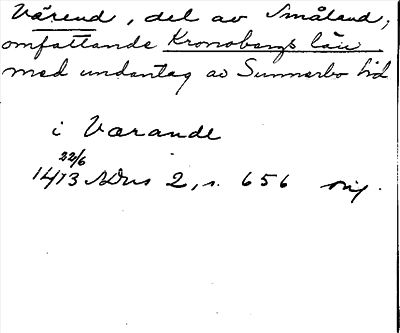 Värend, del av Småland,
omfattande Kronobergs län
med undantag av Sunnerbo hd
i Værande
22/6
1413 SDns 2, s. 656 orig.